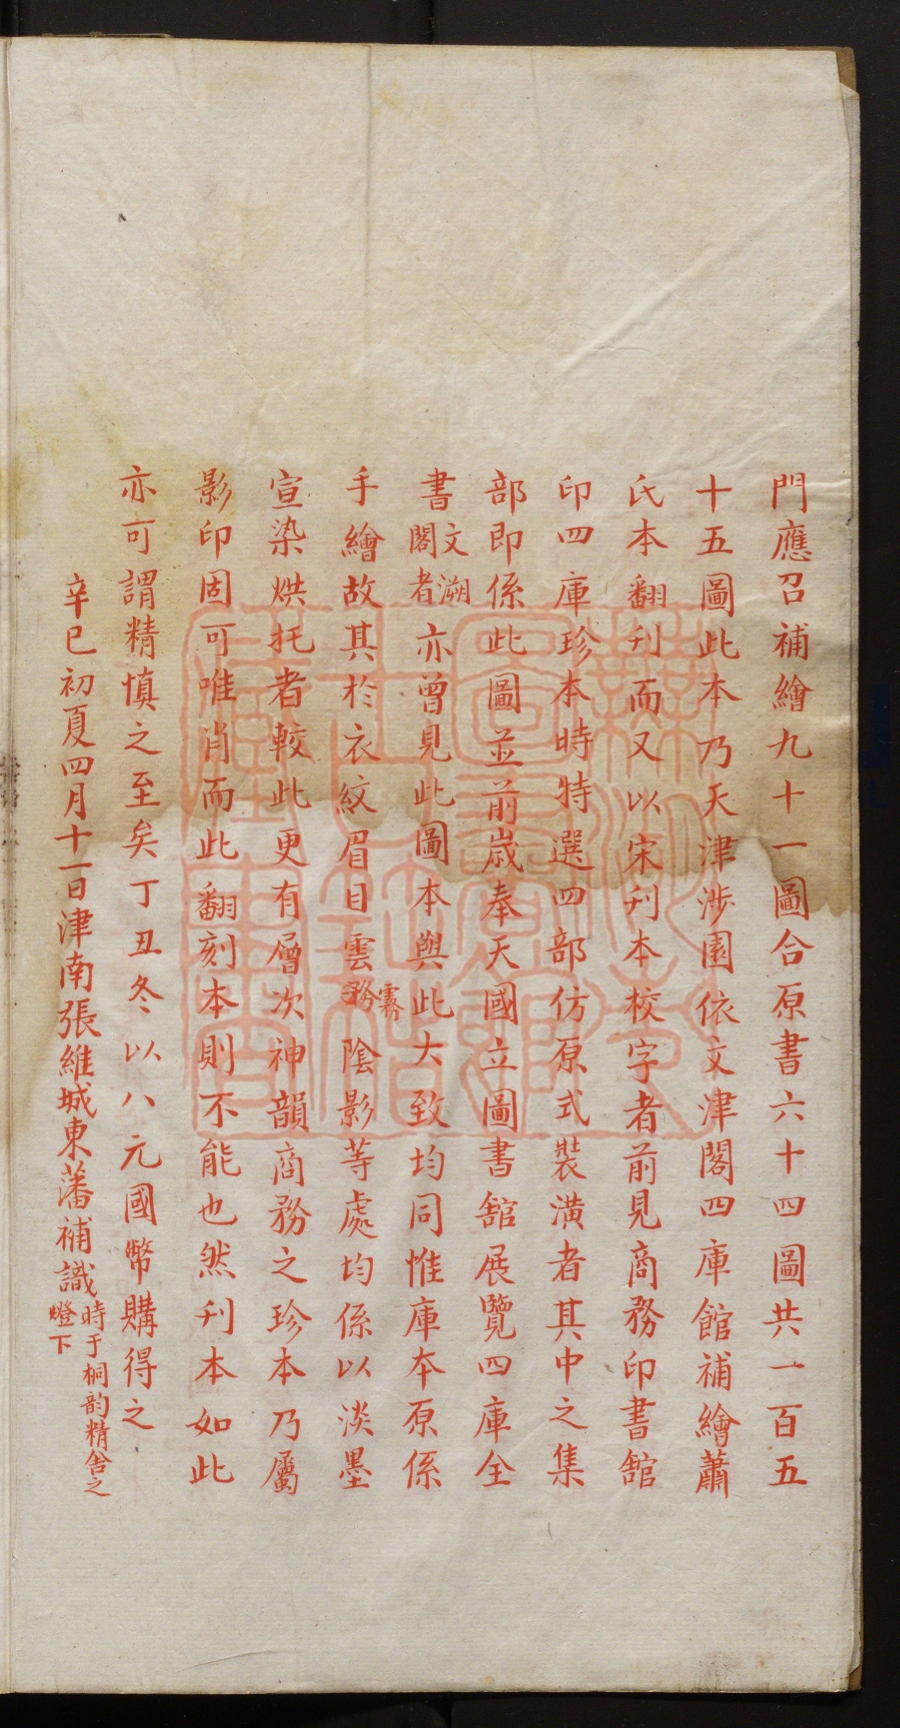 門應召補繪九十一圖合原書六十四圖共一百五
十五圖此本乃天津涉園依文津閣四庫館補繪蕭
氏本翻刋而又以宋刋本校字者前見商務印書館
印四庫珍本時特選四部仿原式裝潢者其中之集
部即係此圖並前歲奉天國立圖書館展覽四庫全
書文溯閣者亦曾見此圖本與此大致均同惟庫本原係
手繪故其於衣紋眉目雲霧陰影等處均係以淡墨
宣染烘托者較此更有層次神韻商務之珍本乃屬
影印固可唯肖而此翻刻本則不能也然刋本如此
亦可謂精慎之至矣丁丑冬以八元國幣購得之
辛巳初夏四月十一日津南張維城東藩補識時于桐韵精舍之燈下